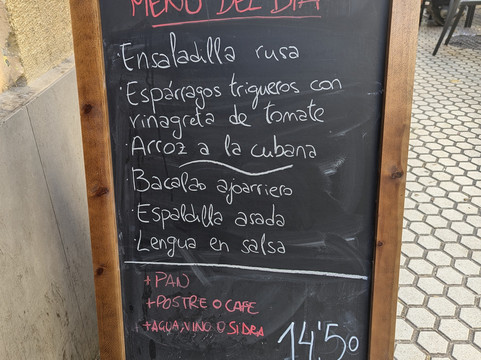 MENÚ DEL DÍA
·Ensaladilla rusa
·Espárragos trigueros con
vinagreta de tomate
·Arroz a la cubana
·Bacalao ajoarriero
·Espaldilla asada
·Lengua en salsa
+PAN
+POSTRE O CAFE
+AGUA, VINO O SIDRA
14'50